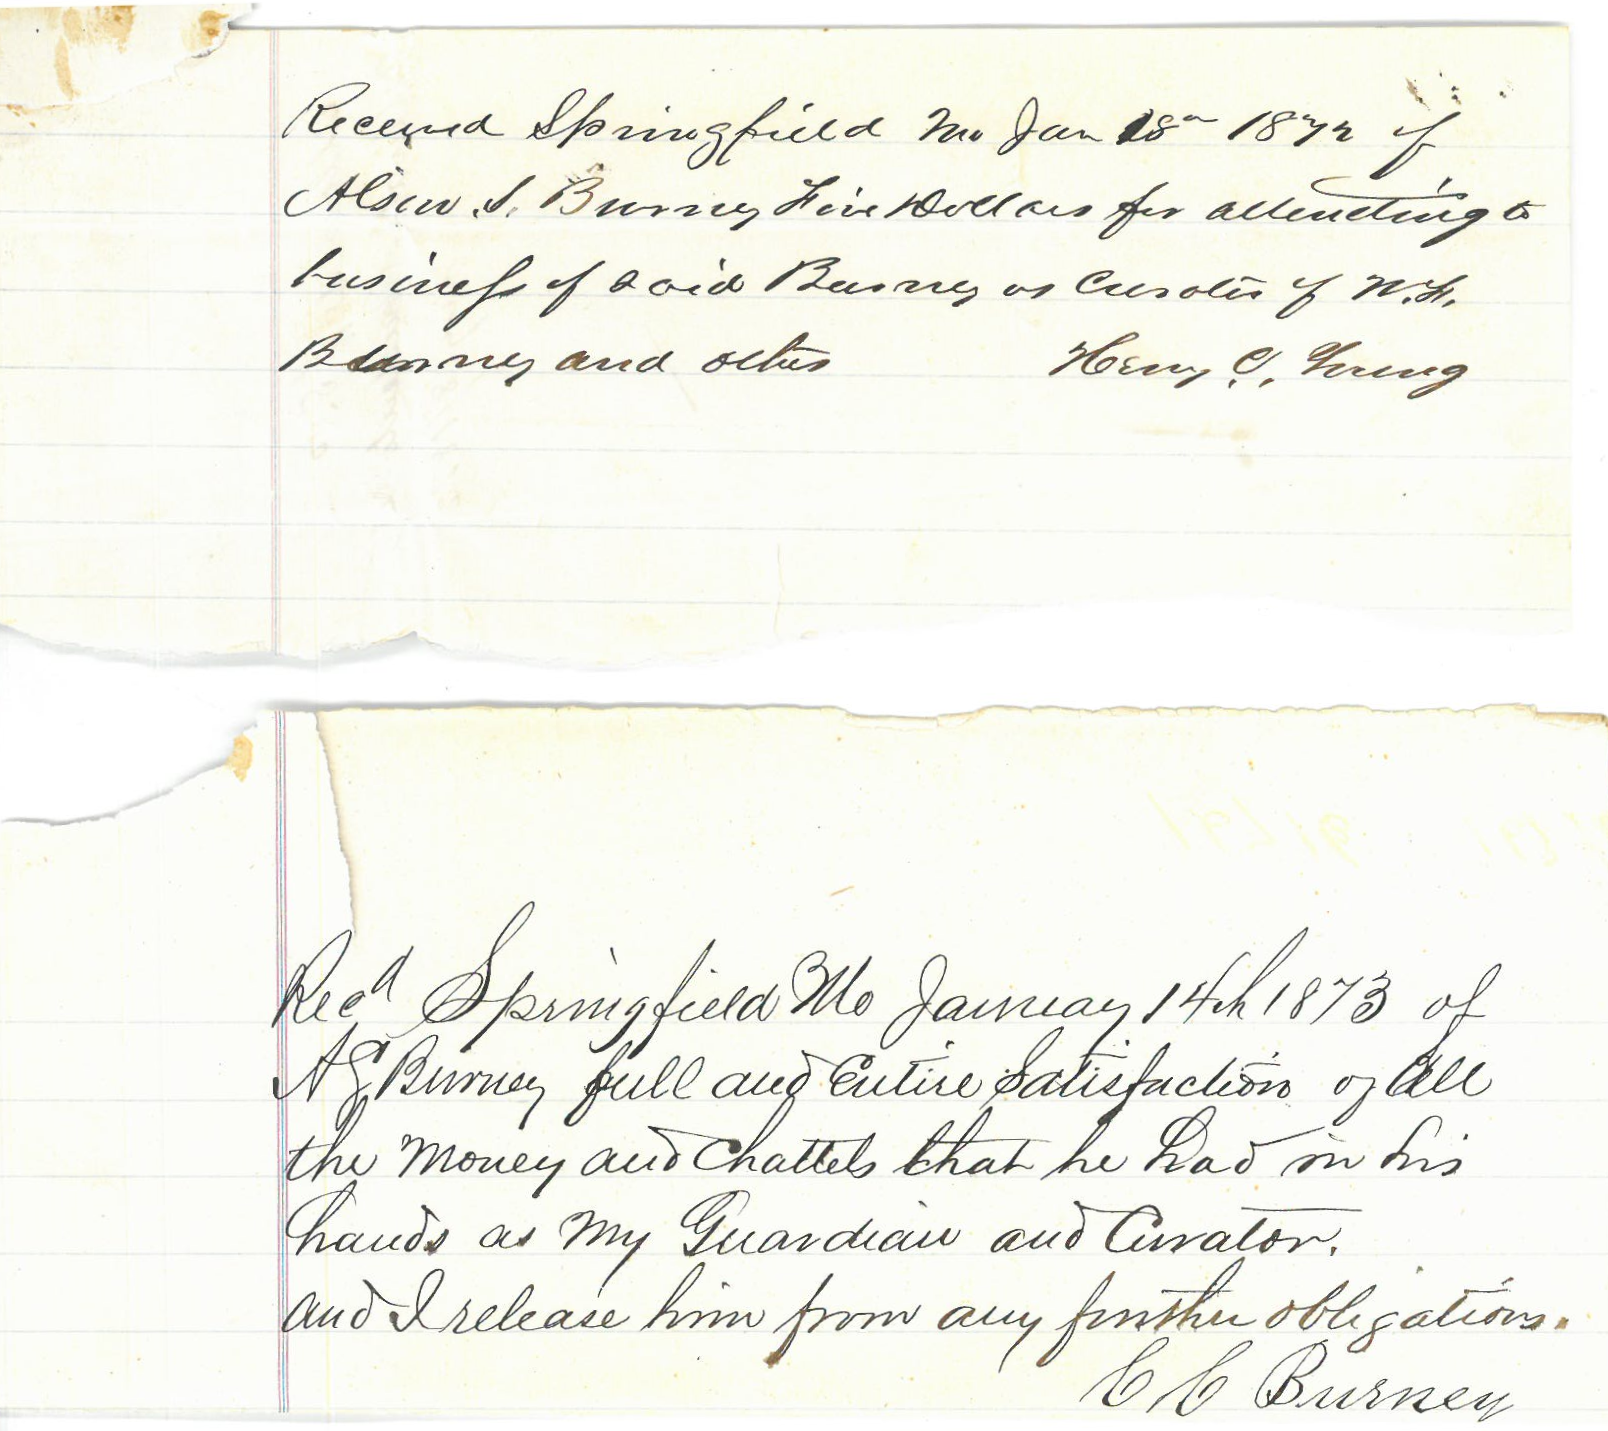 Received Springfield Mo Jan 18th 1872 of
S. Burney Five Dollars for attending to
business of said Burney as Curator of W. F.
Burney and others Henry C. Young
Recd Springfield Mo January 14th 1873 of
A G Burney full and Entire Satisfaction of All
the Money and Chattels that he had in his
hands as My Guardian and Curator.
and I release him from any further obligations.
C C Burney